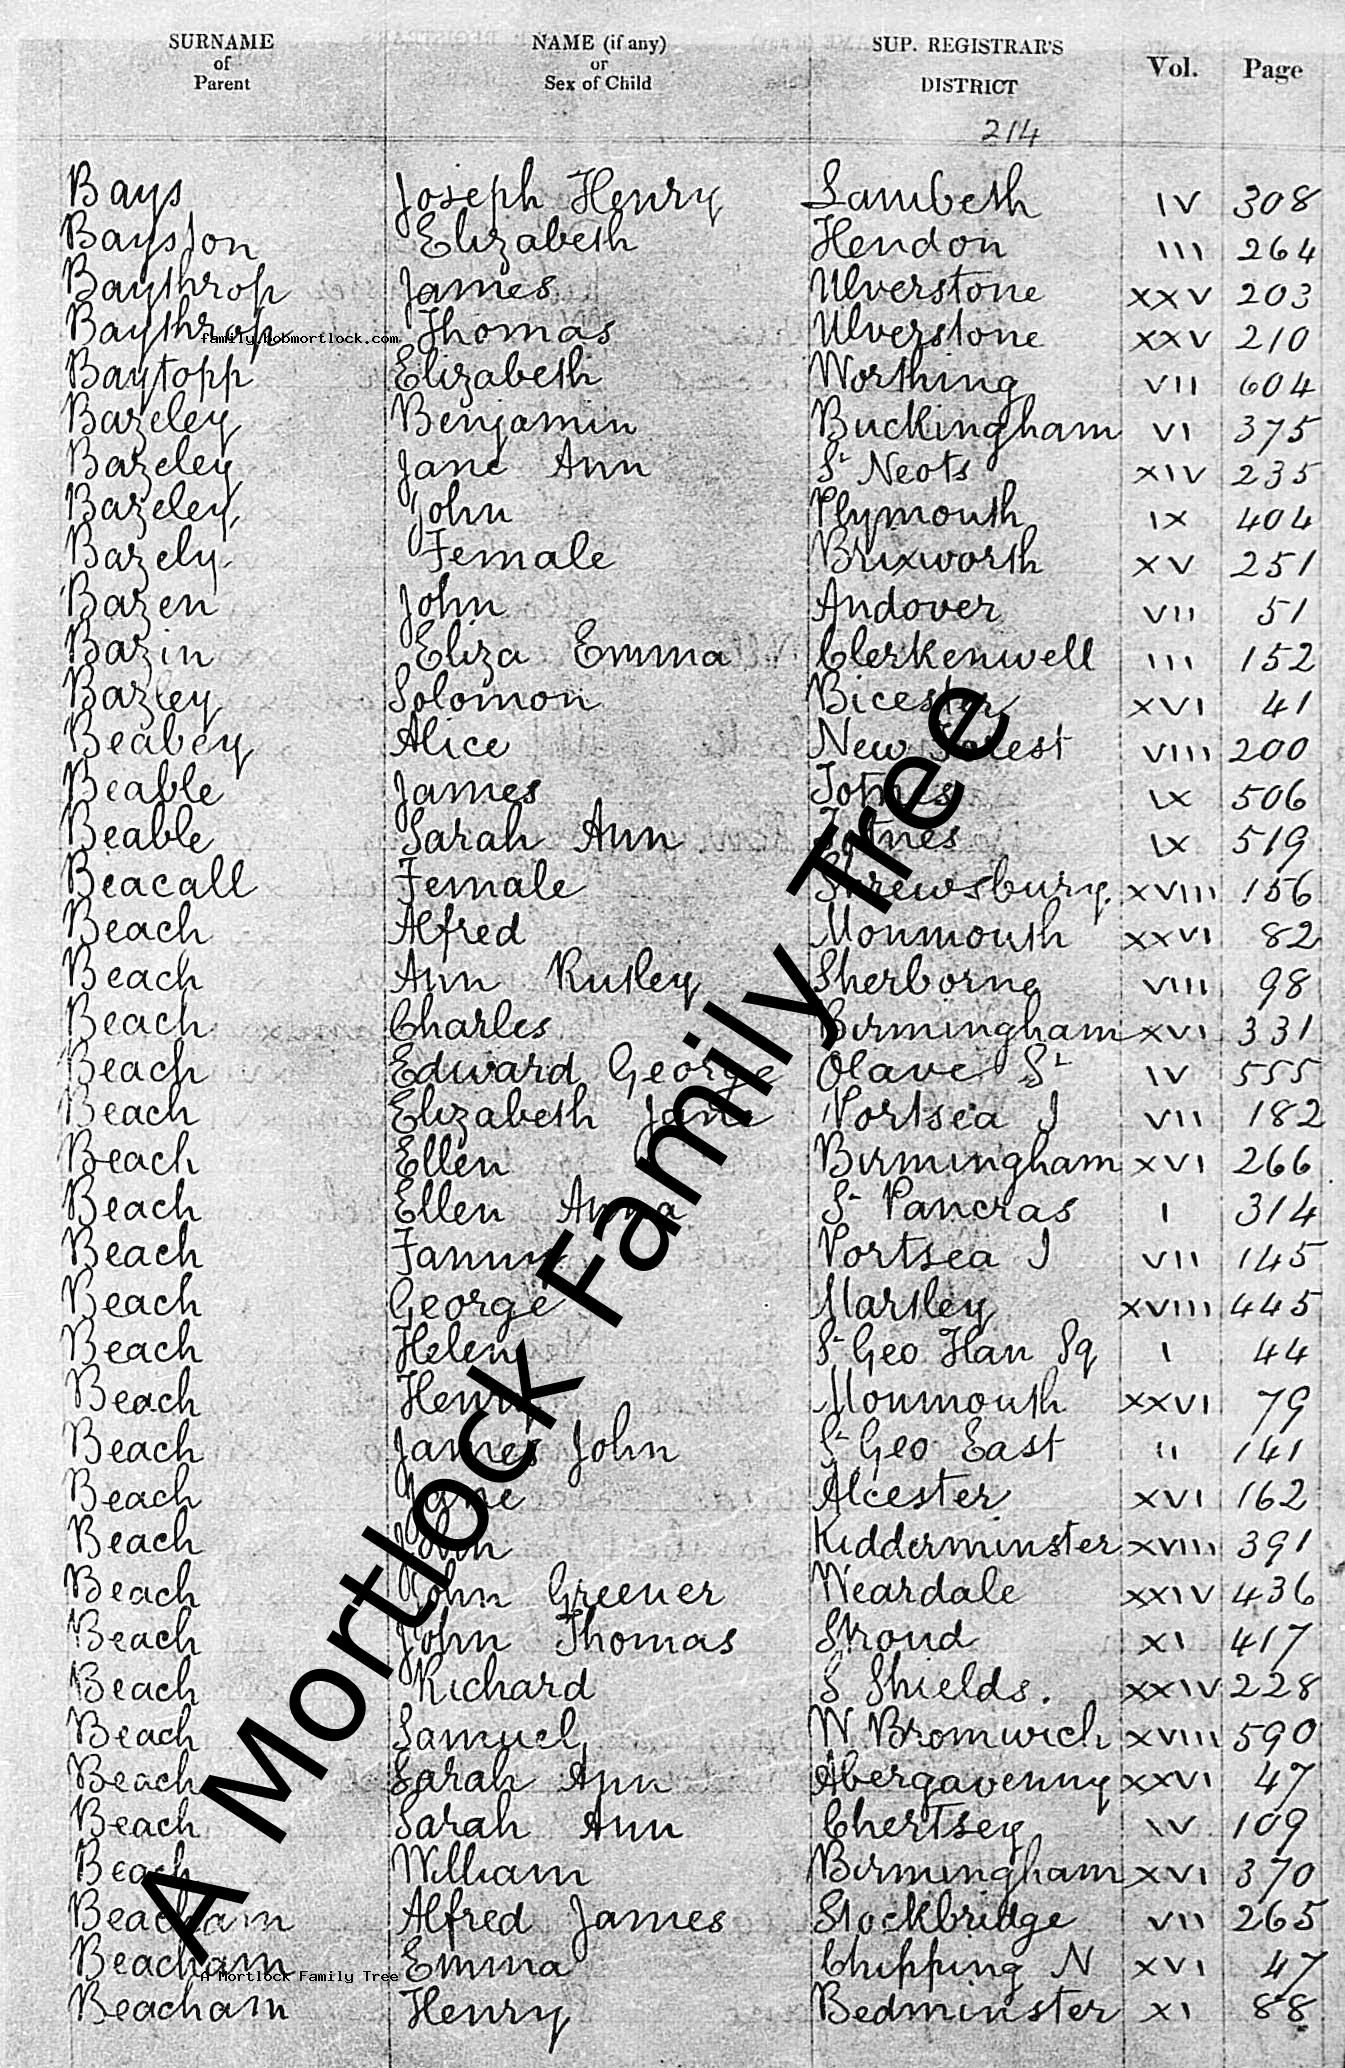 SURNAME of Parent NAME (if any) or Sex of Child SUP. REGISTRAR'S DISTRICT Vol. Page
214
Bays Joseph Henry Lambeth IV 308
Bayston Elizabeth Hendon III 264
Baythrop James Ulverstone XXV 203
Baythrop Thomas Ulverstone XXV 210
family.bobmortlock.com
Baytopp Elizabeth Worthing VII 604
Bazeley Benjamin Buckingham VI 375
Bazeley Jane Ann St Neots XIV 235
Bazeley John Plymouth IX 404
Bazely Female Brixworth XV 251
Bazen John Andover VII 51
Bazin Eliza Emma Clerkenwell III 152
Bazley Solomon Bicester XVI 41
Beabey Alice New Forest VIII 200
Beable James Totnes IX 506
Beable Sarah Ann Totnes IX 519
Beacall Female Shrewsbury. XVIII 156
Beach Alfred Monmouth XXVI 82
Beach Ann Rutley Sherborne VIII 98
Beach Charles Birmingham XVI 331
Beach Edward George Olave St IV 555
Beach Elizabeth Jane Portsea I VII 182
Beach Ellen Birmingham XVI 266
Beach Ellen Anna St Pancras I 314
Beach Fanny Portsea I VII 145
Beach George Martley XVIII 445
Beach Helen St Geo Han Sq I 44
Beach Henry Monmouth XXVI 79
Beach James John St Geo East II 141
Beach Jane Alcester XVI 162
Beach John Kidderminster XVIII 391
Beach John Greener Weardale XXIV 436
Beach John Thomas Stroud XI 417
Beach Richard S Shields. XXIV 228
Beach Samuel W Bromwich XVIII 590
Beach Sarah Ann Abergavenny XXVI 47
Beach Sarah Ann Chertsey IV 109
Beach William Birmingham XVI 370
Beacham Alfred James Stockbridge VII 265
Beacham Emma Chipping N XVI 47
A Mortlock Family Tree
Beacham Henry Bedminster XI 88
A Mortlock Family Tree